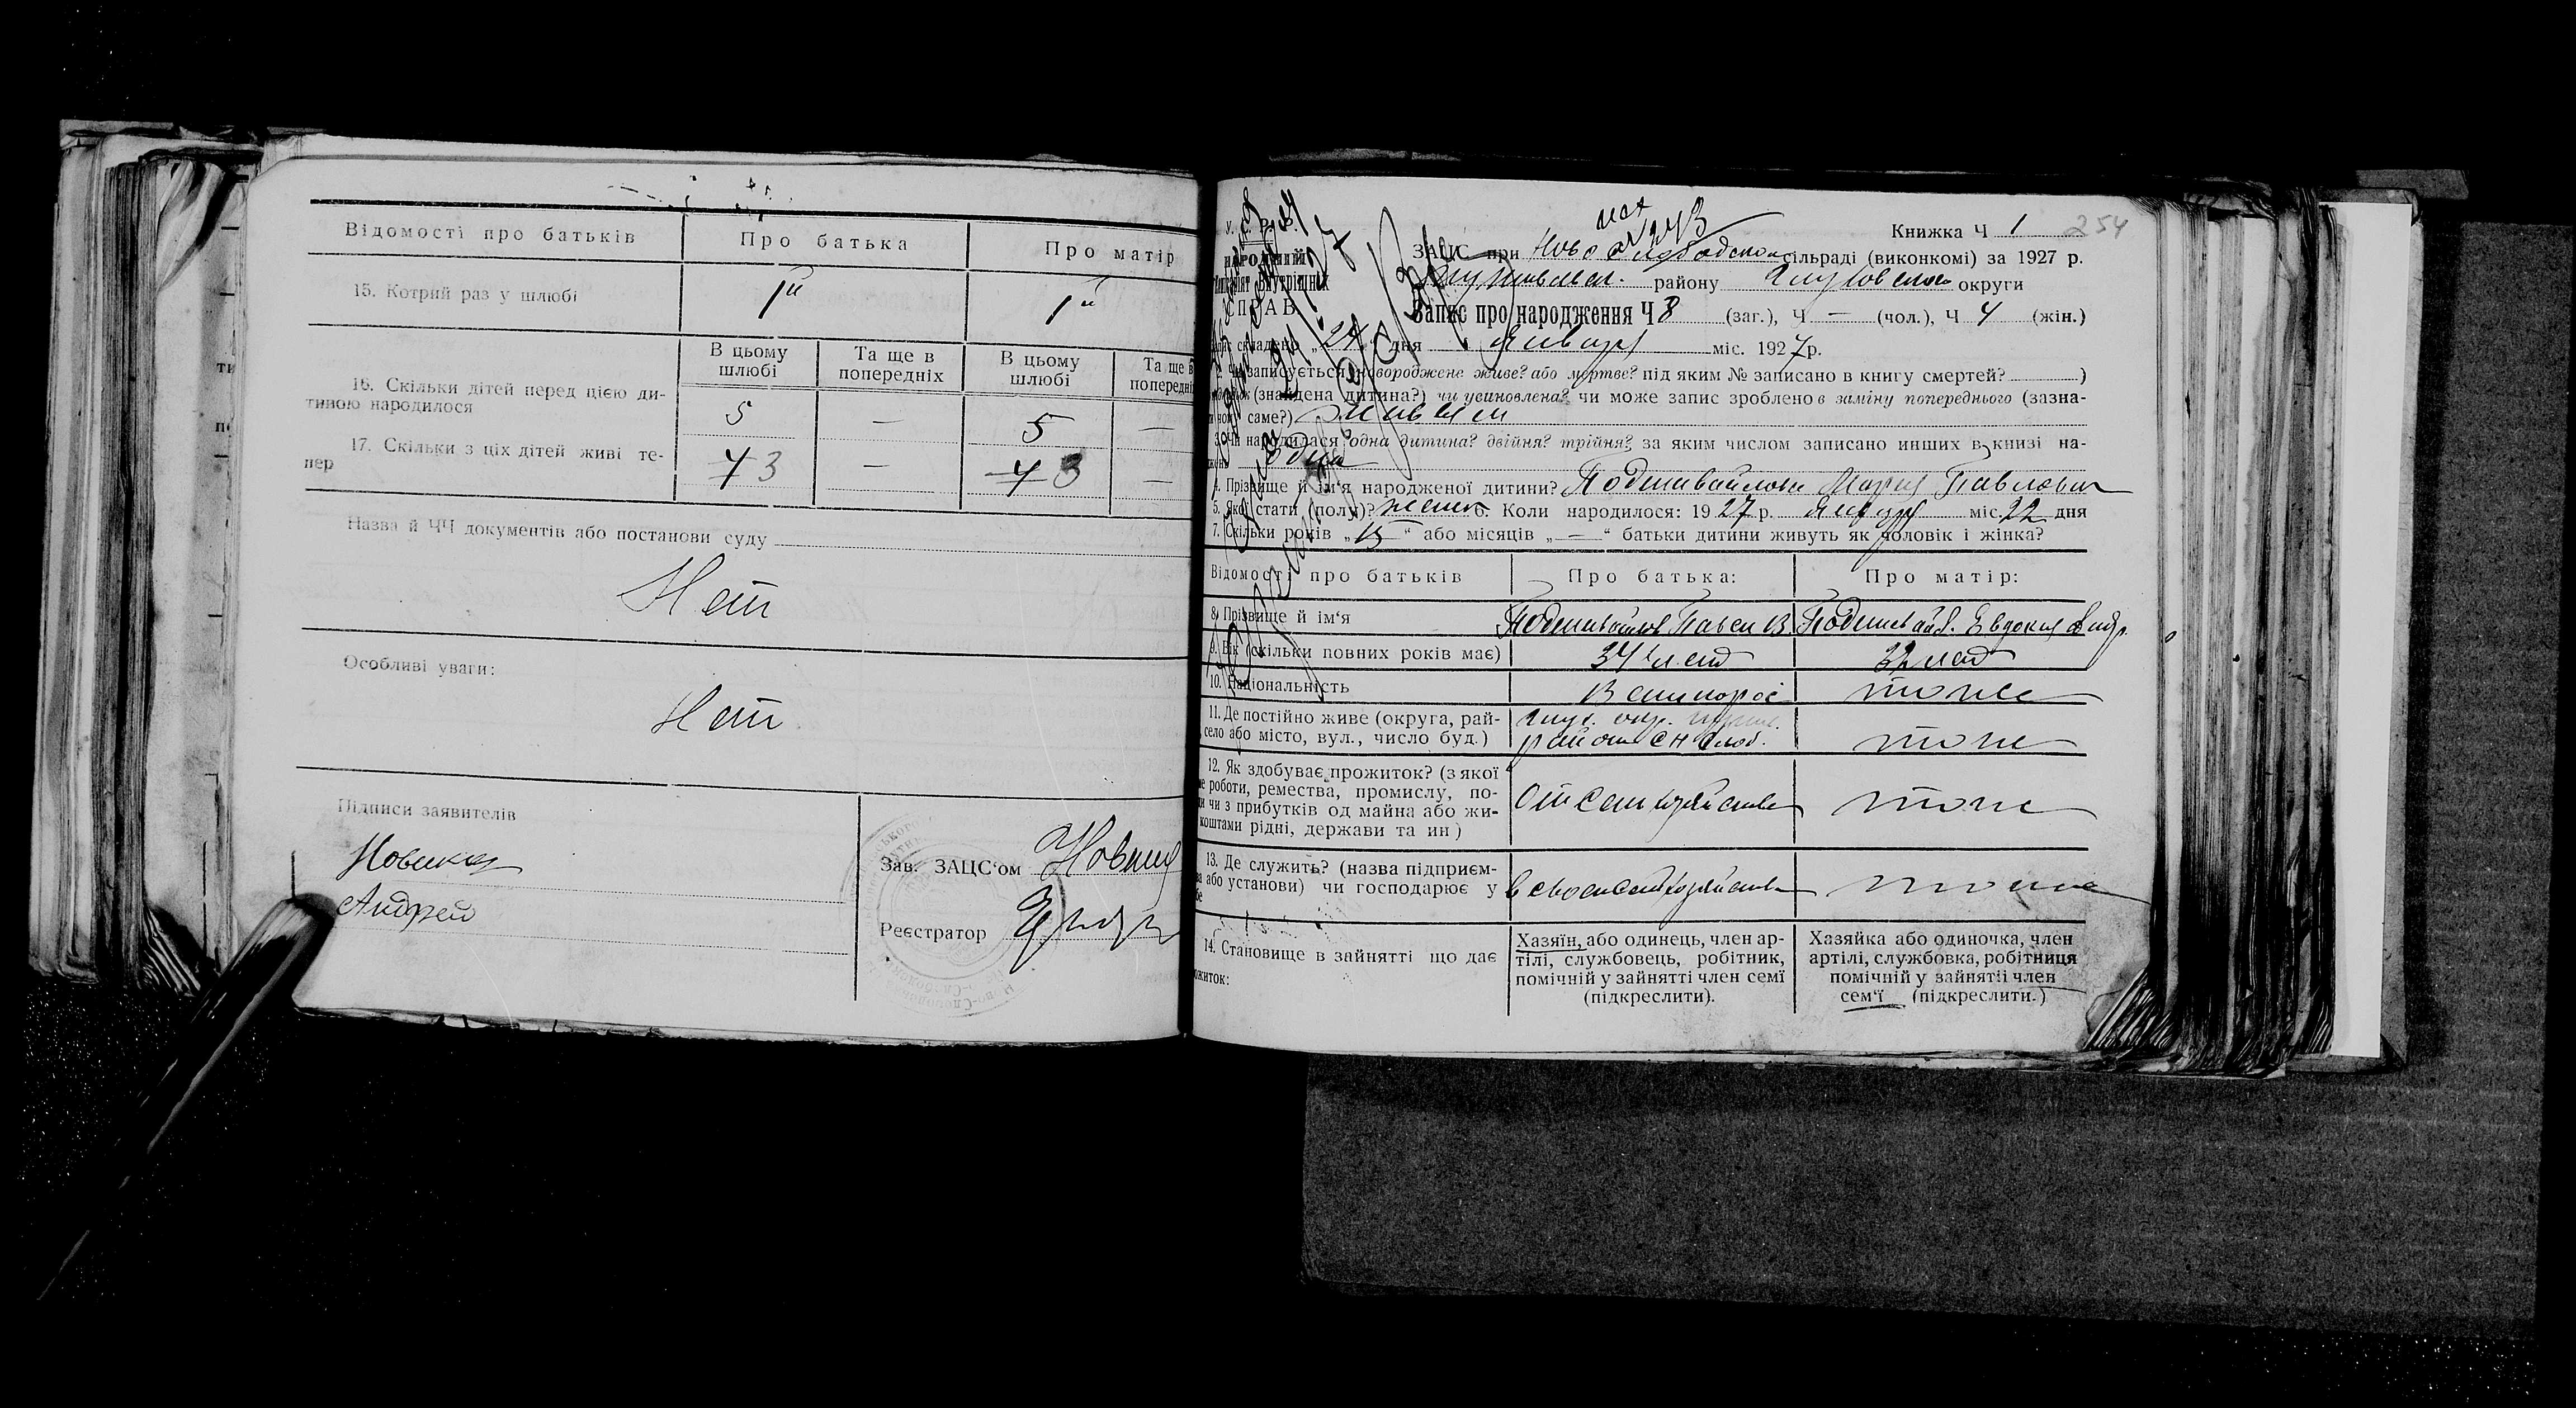 Відомості про батьків
Про батька
Про матір
15. Котрий раз у шлюбі
1й
1й
В цьому шлюбі
Та ще в попередніх
В цьому шлюбі
Та ще в
16. Скільки дітей перед цією ди-
тиною народилося
5
—
5
—
17. Скільки з ціх дітей живі те-
пер
4 3
—
4 3
—
Назва й ЧЧ документів або постанови суду
Нет
Особливі уваги:
Нет
Підписи заявителів
Андрей
Зав. ЗАЦС‘ом
Реєстратор
Книжка Ч 1
254
ЗАЦС при Ново Слободском сільраді (виконкомі) за 1927 р.
Путивльск. району Глуховского округи
НАРОДНИЙ
СПРАВ
Запис про народження Ч 8 (заг.), Ч — (чол.), Ч 4 (жін.)
складено „24“ дня Января міс. 1927 р.
записується новороджене живе? або мертве? під яким № записано в книгу смертей? )
(знайдена дитина?) чи усиновлена? чи може запис зроблено в заміну попереднього (зазна-
саме?) живым
Чи народилася одна дитина? двійня? трійня? за яким числом записано инших в книзі на-
одна
4. Прізвище й ім‘я народженої дитини? Подшивайлова Мария Павловна
5. Якої стати (полу)? женск 6. Коли народилося: 1927 р. Января міс. 22 дня
7. Скільки років „15“ або місяців „—“ батьки дитини живуть як чоловік і жінка?
Відомості про батьків
Про батька:
Про матір:
8. Прізвище й ім‘я
Подшивайлов Павел В.
Подшивайл. Евдокия Андр.
9. Вік (скільки повних років має)
34 лет
32 лет
10. Національність
Великорос
тоже
11. Де постійно живе (округа, рай-
село або місто, вул., число буд.)
Глух. окр. Путив.
район с Н Слоб.
тоже
12. Як здобуває прожиток? (з якої
роботи, ремества, промислу, по-
чи з прибутків од майна або жи-
коштами рідні, держави та ин)
От сель хозяйства
тоже
13. Де служить? (назва підприєм-
або установи) чи господарює у
в своем сель хозяйстве
тоже
14. Становище в зайнятті що дає
Хазяїн, або одинець, член ар-
тілі, службовець, робітник,
помічній у зайнятті член семї
(підкреслити).
Хазяйка або одиночка, член
артілі, службовка, робітниця
помічній у зайнятіі член
сем‘ї (підкреслити.)